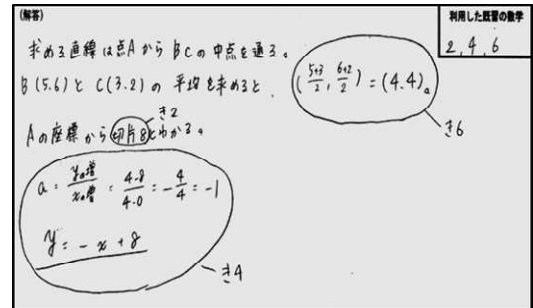 (解答)
利用した既習の数学
2, 4, 6
求める直線は点AからBCの中点を通る。
B(5.6)とC(3.2)の平均を求めると、
(5+3/2, 6+2/2) = (4.4)。
き6
き2
Aの座標から切片8とわかる。
a = yの増/xの増 = 4-8/4-0 = -4/4 = -1
y = -x+8
き4